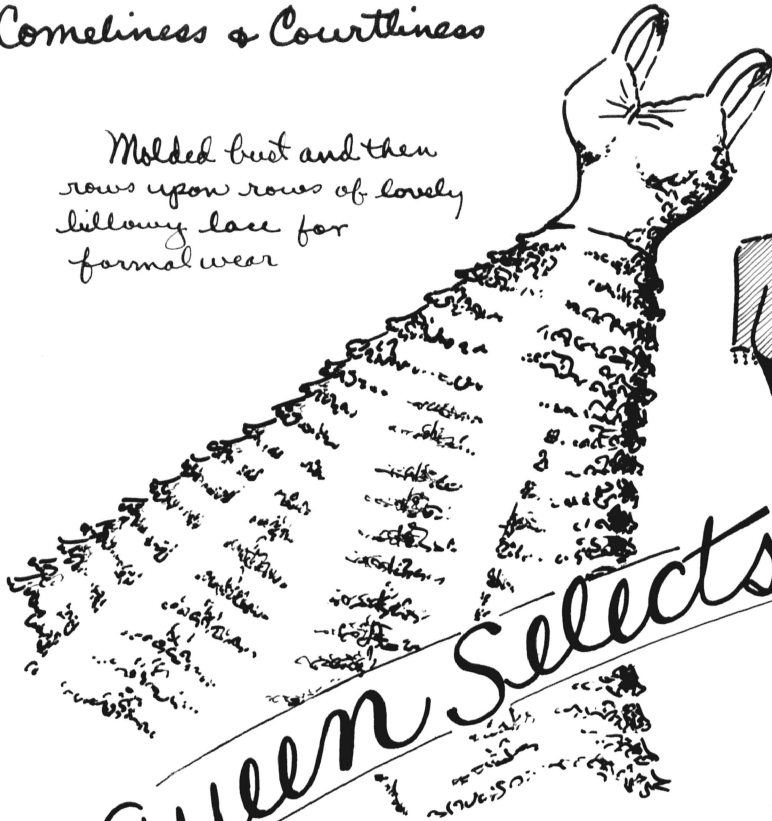 Comeliness & Courtliness
Molded bust and then
rows upon rows of lovely
billowy lace for
formal wear
Queen Selects